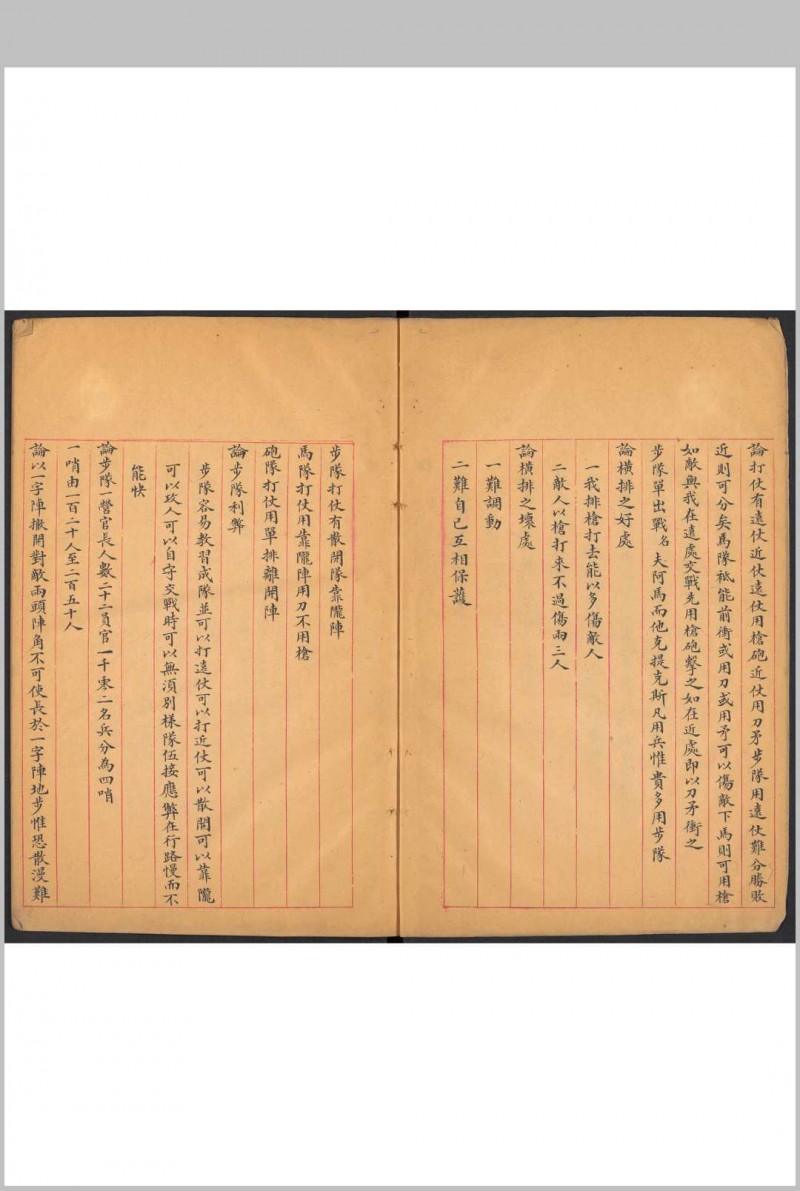 論打仗有遠仗近仗遠仗用槍砲近仗用刀矛步隊用遠仗難分勝敗
近則可分矣馬隊祗能前衝或用刀或用矛可以傷敵下馬則可用槍
如敵與我在遠處交戰先用槍砲擊之如在近處即以刀矛衝之
步隊單出戰名夫阿馬而他克提克斯凡用兵惟貴多用步隊
論橫排之好處
一我排槍打去能以多傷敵人
二敵人以槍打來不過傷兩三人
論橫排之壞處
一難調動
二難自己互相保護
步隊打仗有散開隊靠隴陣
馬隊打仗用靠隴陣用刀不用槍
砲隊打仗用單排離開陣
論步隊利弊
步隊容易教習成隊並可以打遠仗可以打近仗可以散開可以靠隴
可以攻人可以自守交戰時可以無須別樣隊伍接應弊在行路慢而不
能快
論步隊一營官長人數二十二員官一千零二名兵分為四哨
一哨由一百二十人至二百五十人
論以一字陣撤開對敵兩頭陣角不可使長於一字陣地步惟恐散漫難